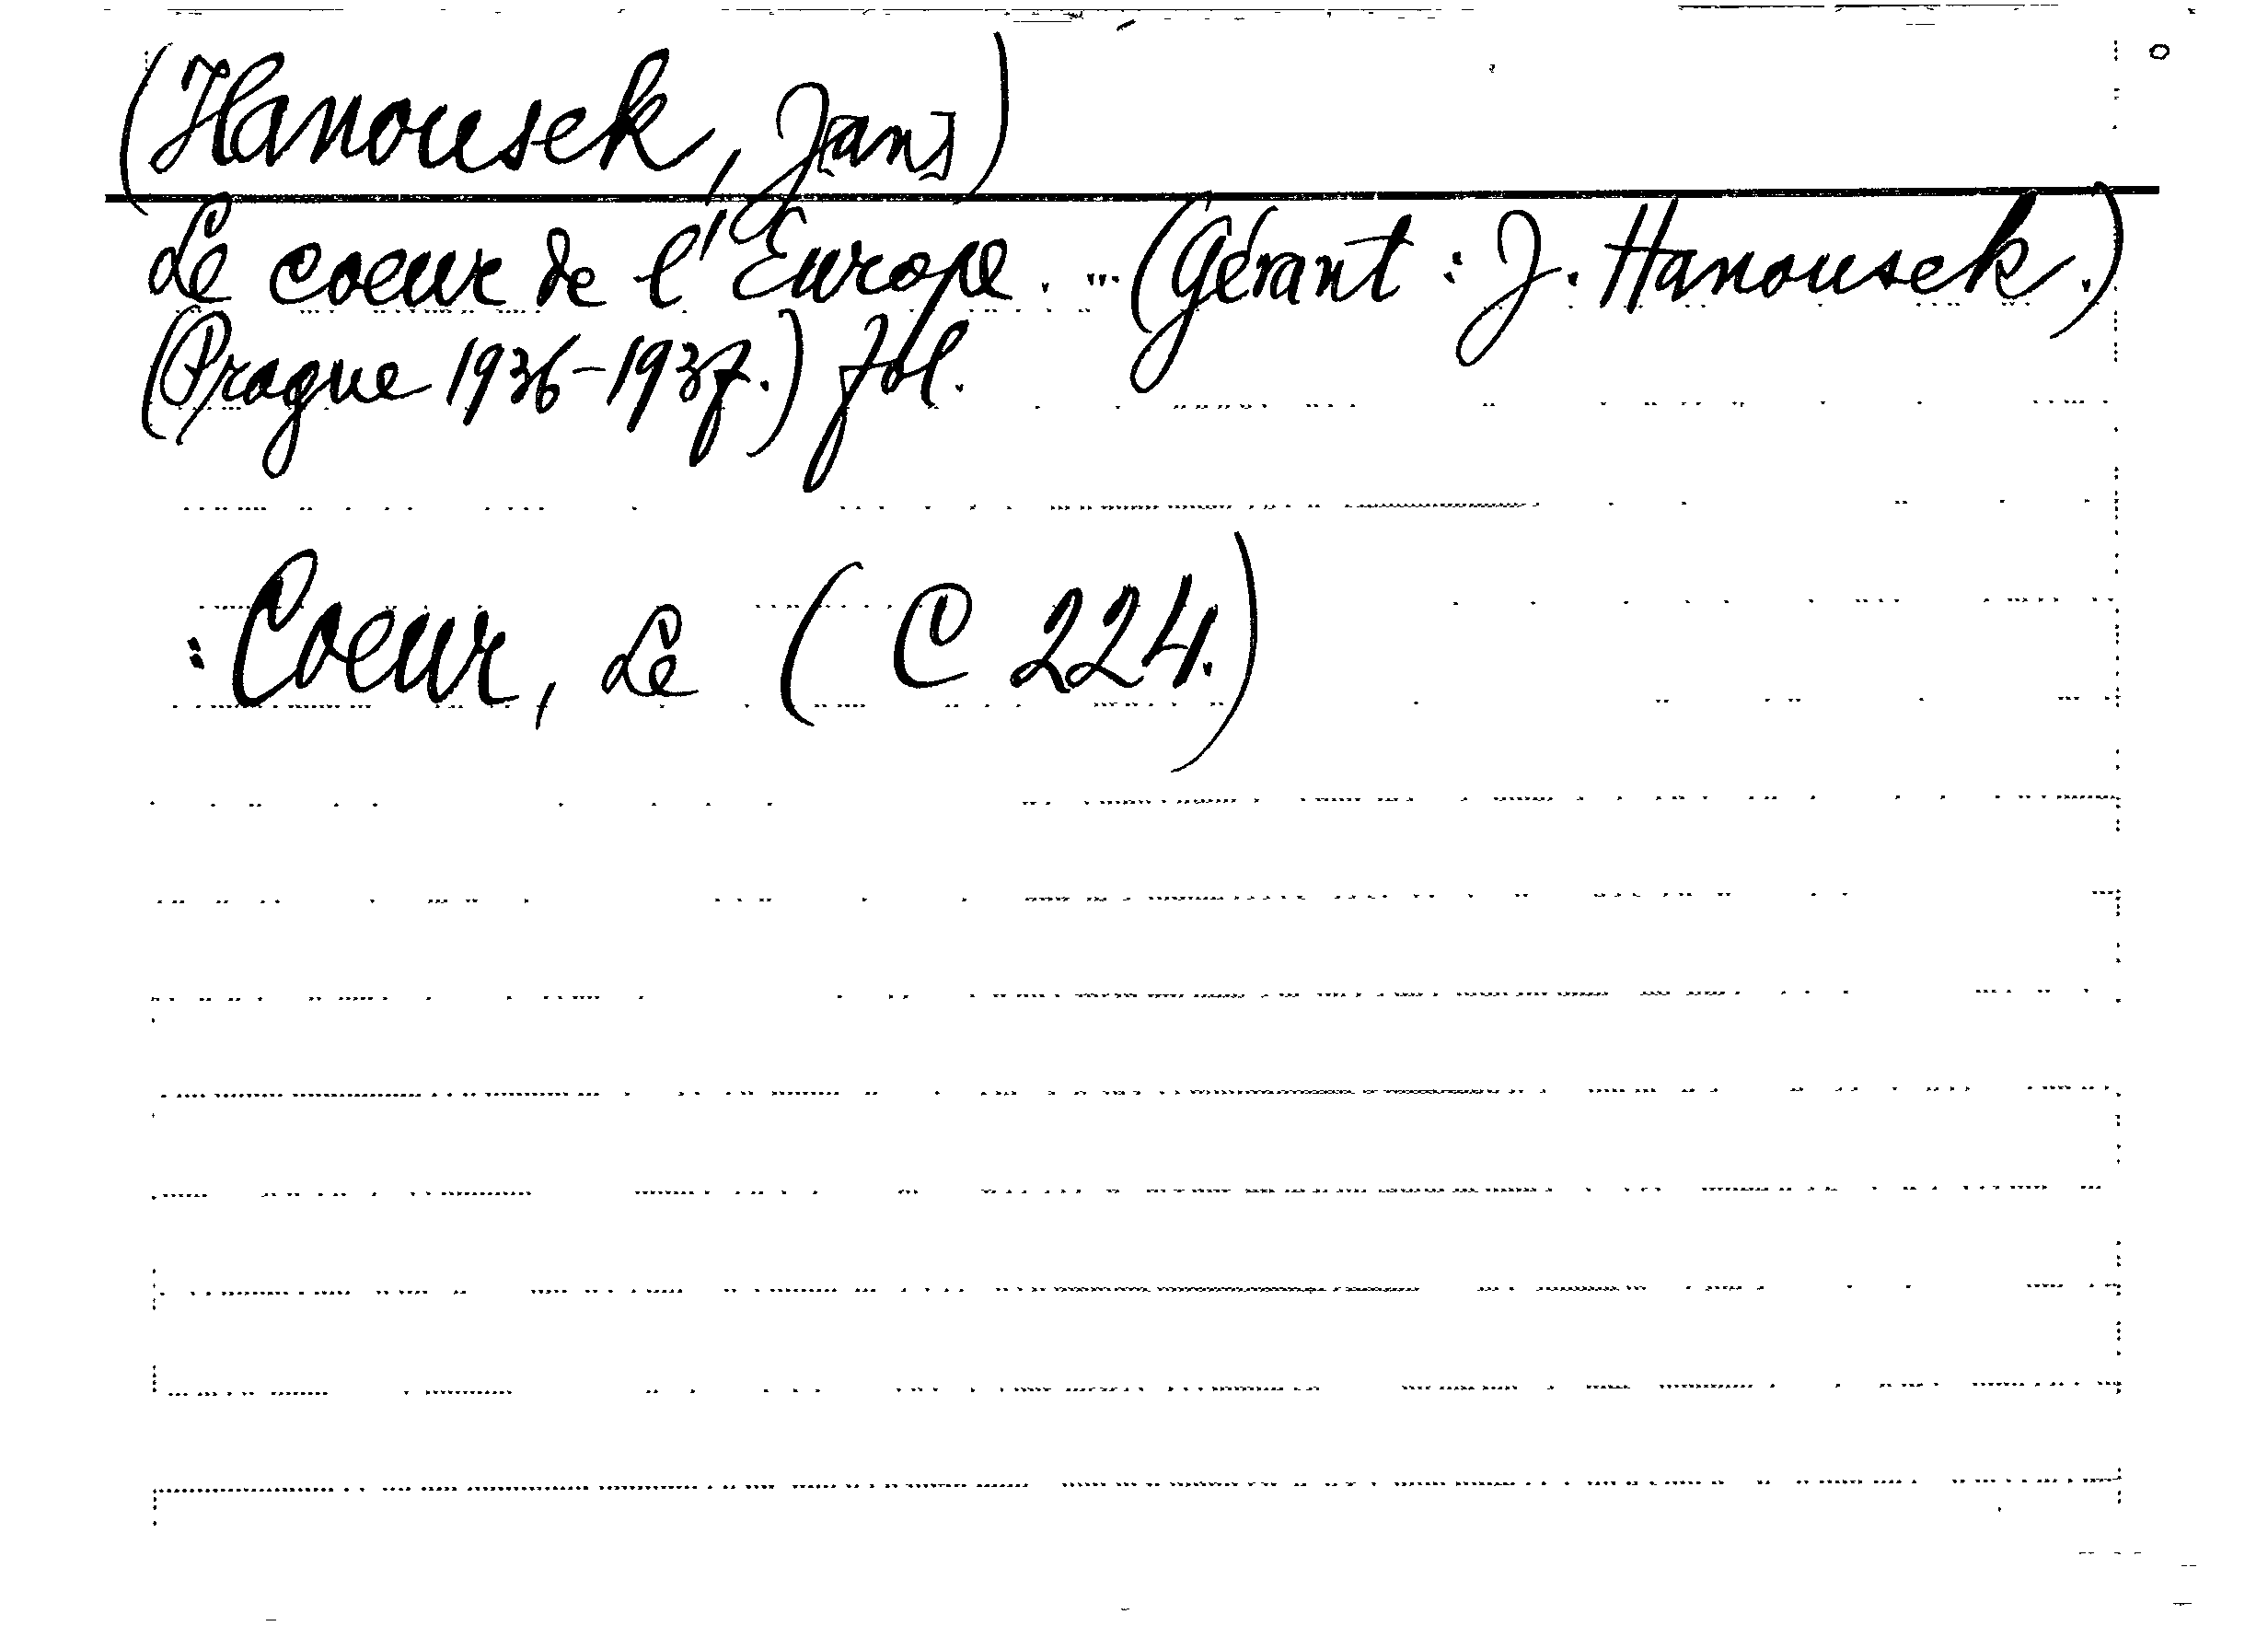 (Hanousek, J[an])
Le coeur de l'Europe. ... (Gérant : J. Hanousek.)
(Prague 1936-1937.) fol.
: Coeur, Le ( C 224.)